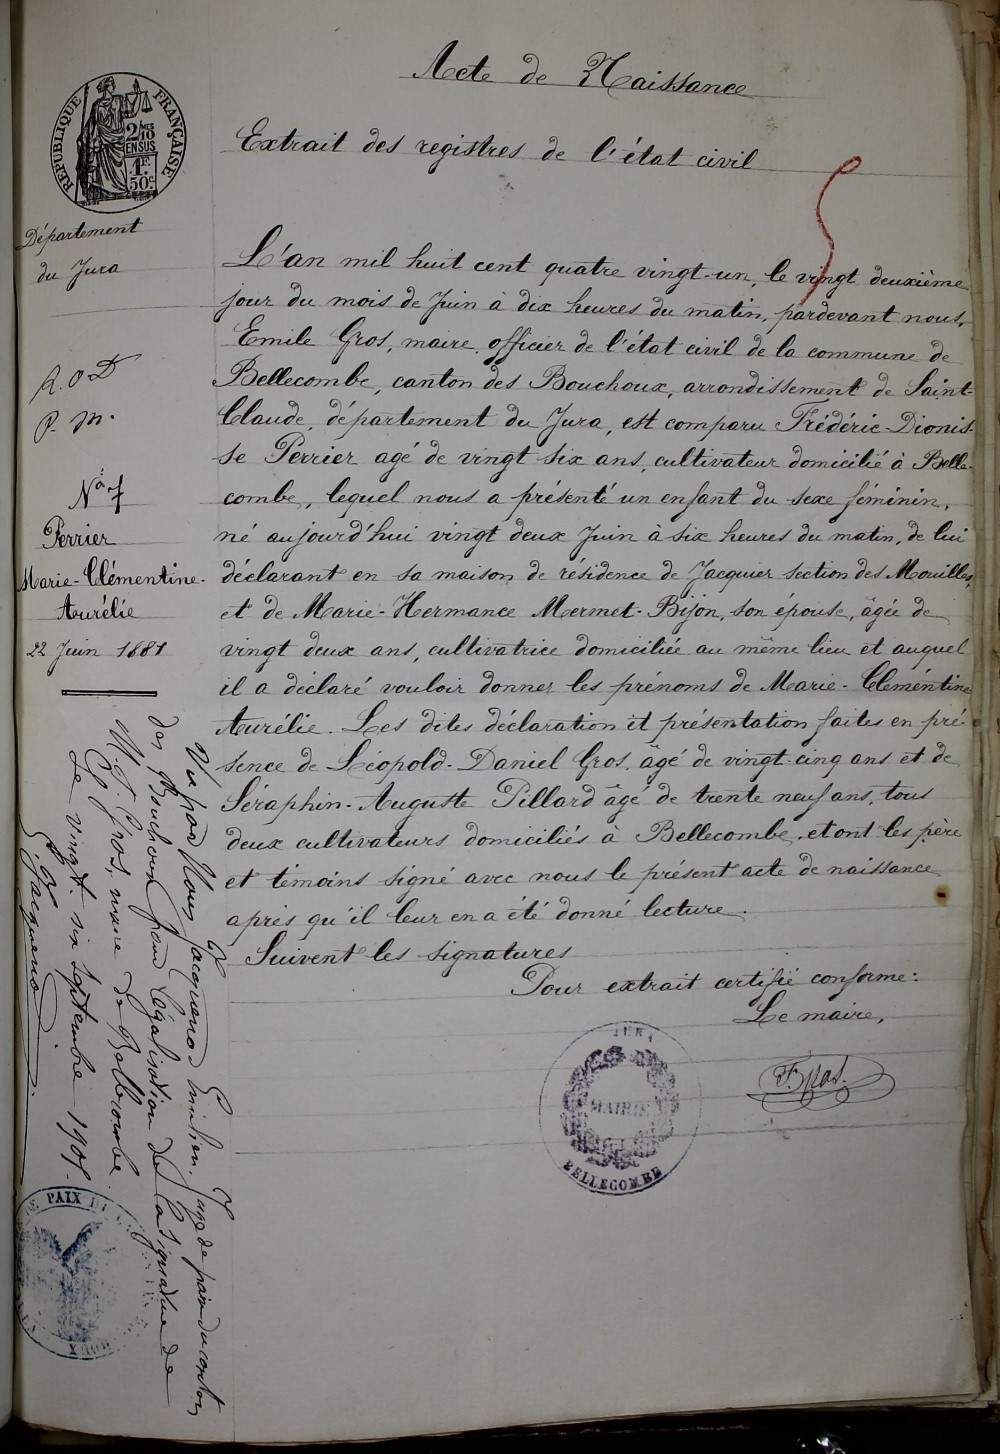 Acte de Naissance
Extrait des registres de l'état civil
RÉPUBLIQUE FRANÇAISE
2/10
EN SUS
1F.
50c.
Département
du Jura
R. O D
P. M.
No 7
Perrier
Marie-Clémentine-
Aurélie
22 Juin 1881
L'an mil huit cent quatre vingt-un, le vingt deuxième
jour du mois de Juin à dix heures du matin, pardevant nous,
Emile Gros, maire, officier de l'état civil de la commune de
Bellecombe, canton des Bouchoux, arrondissement de Saint-
Claude, département du Jura, est comparu Frédéric-Dionis-
se Perrier agé de vingt six ans, cultivateur domicilié à Belle-
combe, lequel nous a présenté un enfant du sexe féminin,
né aujourd'hui vingt deux Juin à six heures du matin, de lui
déclarant en sa maison de résidence de Jacquier section des Mouilles,
et de Marie-Hermance Mermet-Bijon, son épouse, âgée de
vingt deux ans, cultivatrice domiciliée au même lieu et auquel
il a déclaré vouloir donner les prénoms de Marie-Clémentine
Aurélie. Les dites déclaration et présentation faites en pré-
sence de Léopold-Daniel Gros, âgé de vingt-cinq ans et de
Séraphin-Auguste Pillard âgé de trente neuf ans, tous
deux cultivateurs domiciliés à Bellecombe, et ont les père
et témoins signé avec nous le présent acte de naissance
après qu'il leur en a été donné lecture.
Suivent les signatures
Pour extrait certifié conforme:
Le maire,
F. Gros.
JURA
MAIRIE
BELLECOMBE
Vu par Nous Jacquenod Emilien, Juge de paix du canton
des Bouchoux pour légalisation de la signature de
M. F. Gros, maire de Bellecombe.
Le vingt-six septembre 190
Jacquenod
DE PAIX DU
OUX